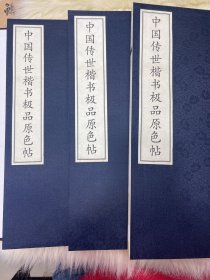 中国传世楷书极品原色帖
中国传世楷书极品原色帖
中国传世楷书极品原色帖